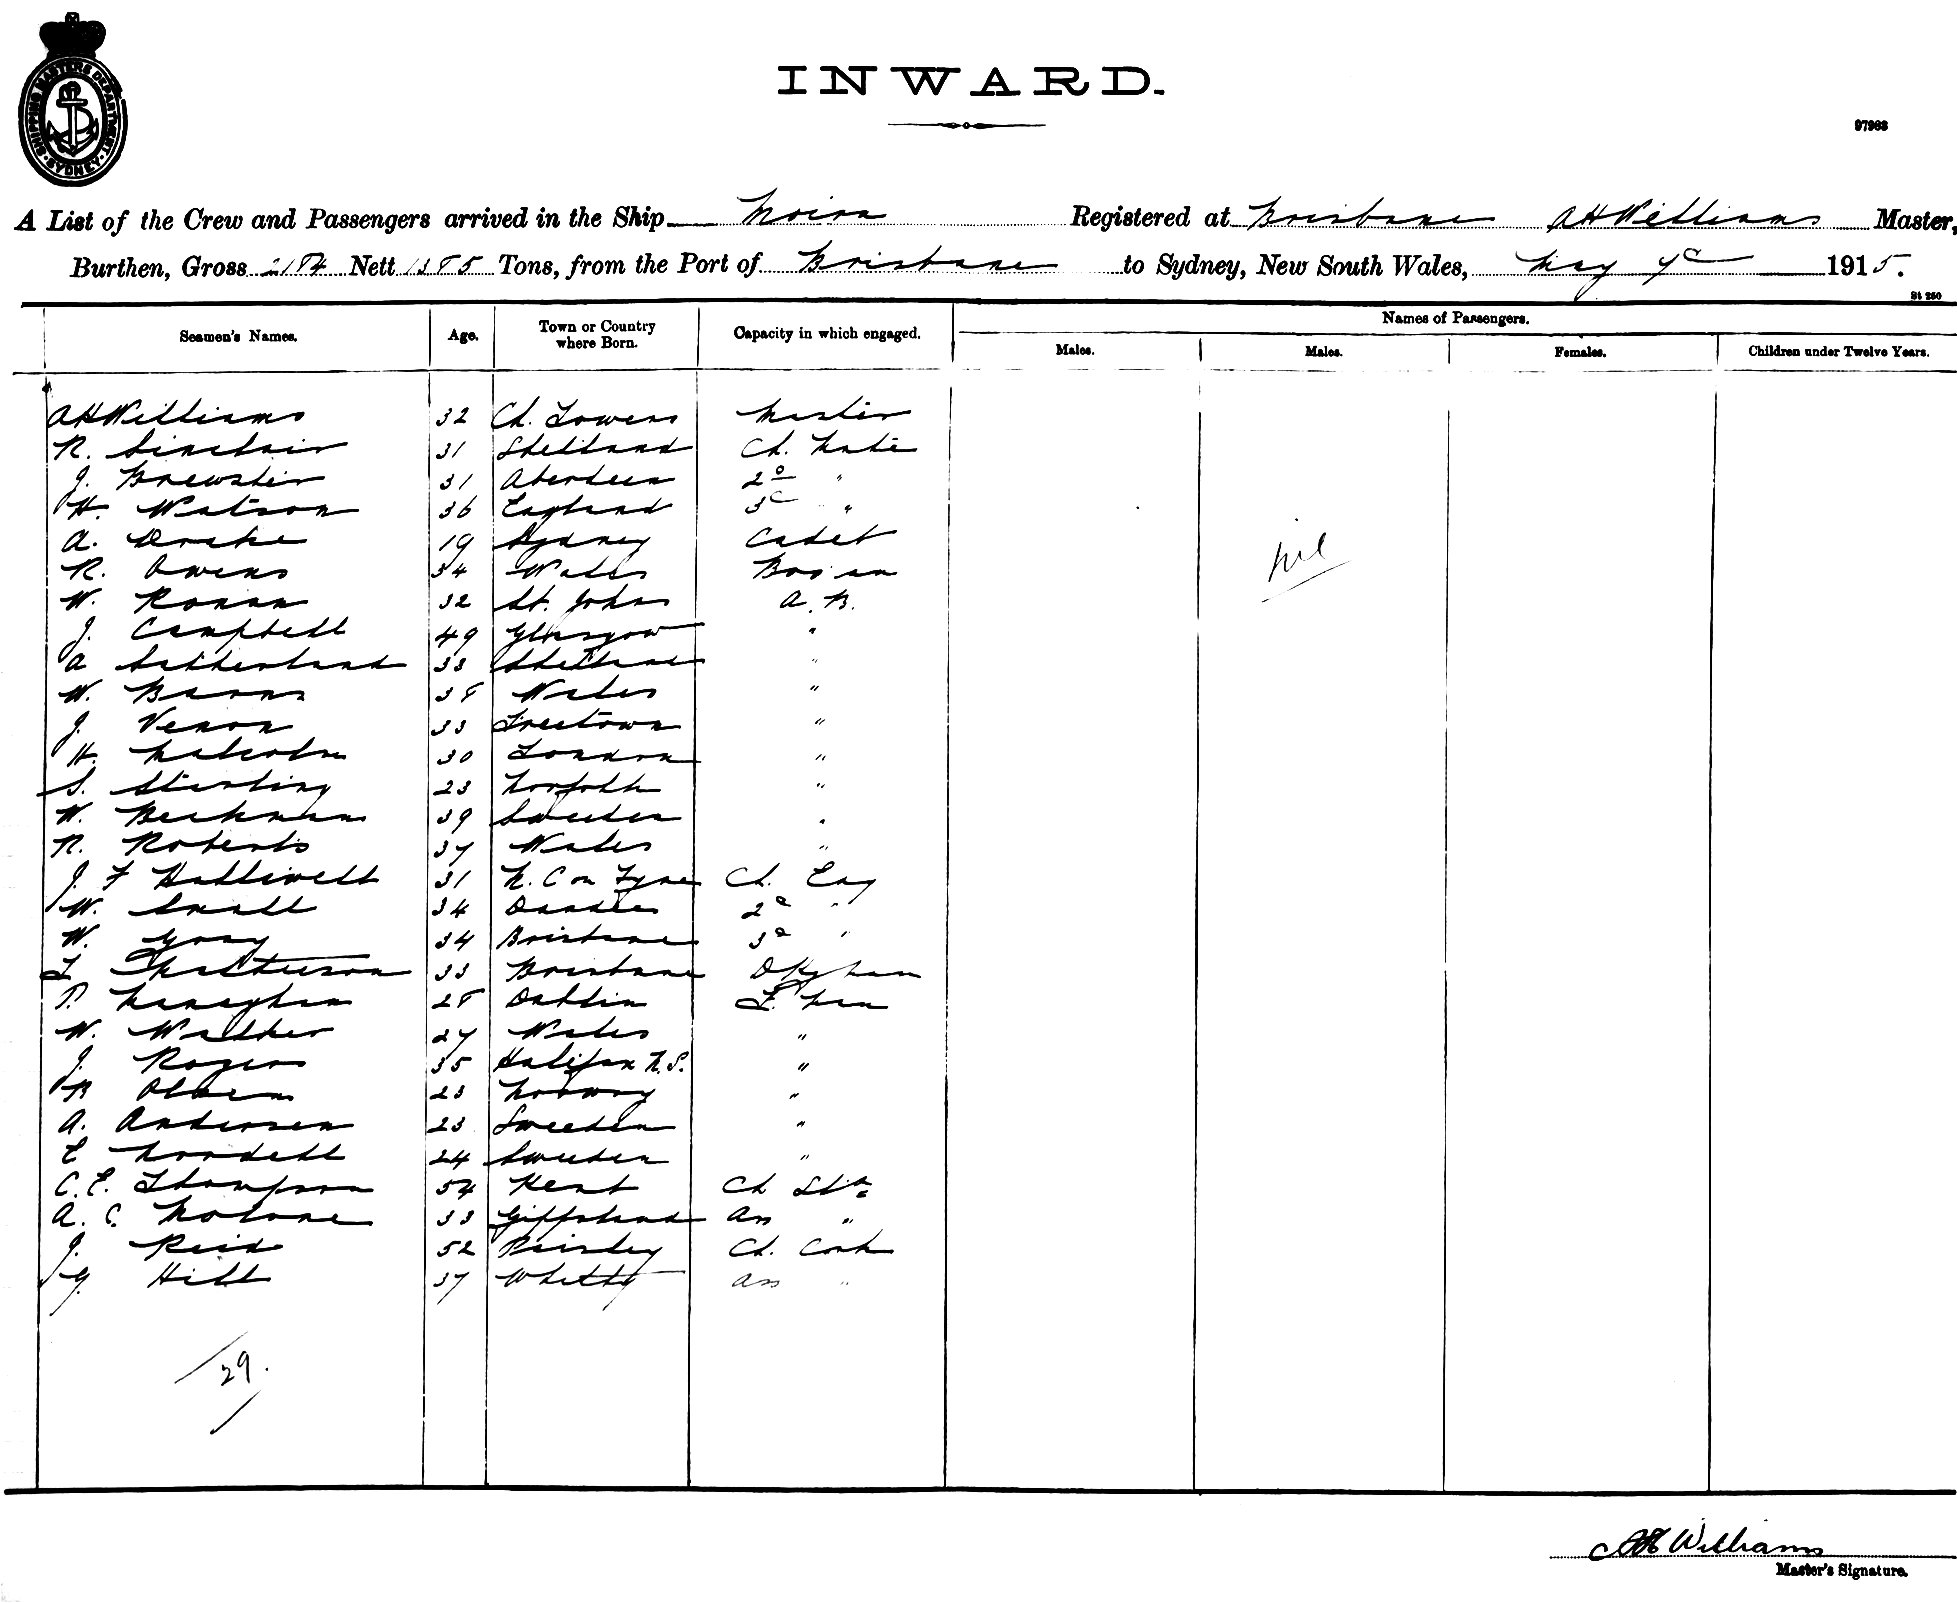 SHIPPING MASTERS DEPARTMENT SYDNEY
INWARD.
97963
A List of the Crew and Passengers arrived in the Ship Moira Registered at Brisbane AHWilliams Master,
Burthen, Gross 2184 Nett 1385 Tons, from the Port of Brisbane to Sydney, New South Wales, May 7th 1915.
St 250
Seamen's Names. Age. Town or Country where Born. Capacity in which engaged. Names of Passengers.
Males. Males. Females. Children under Twelve Years.
AHWilliams 32 Ch. Towers Master
R. Sinclair 31 Shetland Ch. Mate
J. Brewster 31 Aberdeen 2d "
H. Watson 36 England 3d "
A. Drake 19 Sydney Cadet
R. Owens 34 Wales Bosun
W. Ronan 32 St. Johns A.B.
J. Campbell 49 Glasgow "
A Sutherland 33 Shetland "
W. Barns 38 Wales "
J. Venon 33 Freetown "
H. Malcolm 30 London "
S. Sterling 23 Norfolk "
W. Beckman 39 Sweden "
R. Roberts 37 Wales "
J. F Halliwell 31 N. C on Tyne Ch. Eng
W. Small 34 Dundee 2d "
W. Gray 34 Brisbane 3d "
T Matheson 33 Brisbane Dkyman
P. Monaghan 28 Dublin F. man
W. Walker 27 Wales "
J. Rogers 35 Halifax N.S. "
B Olsen 23 Norway "
A. Andersen 23 Sweeden "
E Nordell 24 Sweden "
C.E. Thompson 54 Kent Ch Std
A. C. Molone 33 Gippsland Ass "
J. Reid 52 Paisley Ch. Cook
G. Hill 37 Whitby Ass "
nil
29.
AHWilliams
Master's Signature.